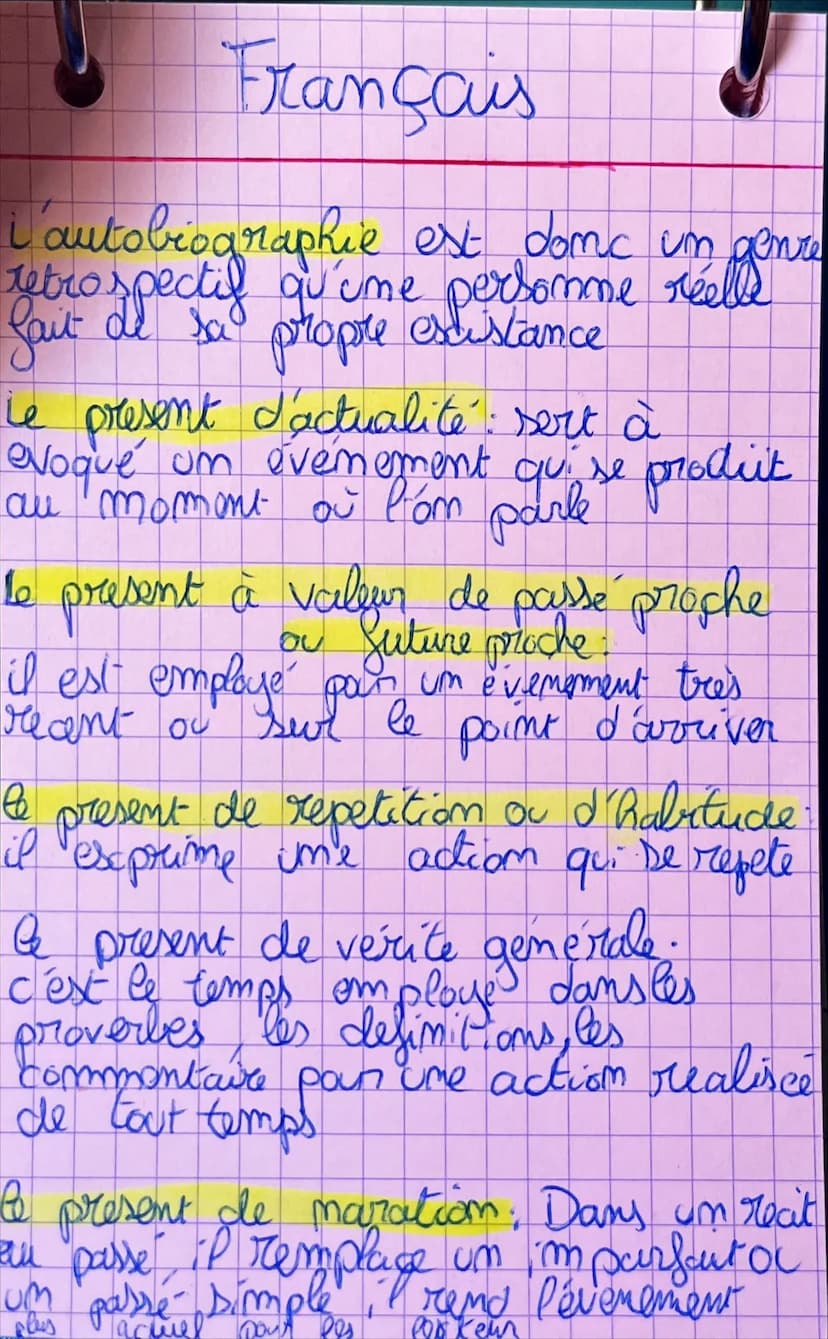 Français
L'autobiographie est donc un genre
retrospectif qu'une personne réelle
fait de sa propre existance
Le present d'actualité : sert à
evoqué un événement qui se produit
au moment où l'on parle
Le present à valeur de passé proche
ou future proche :
il est employé par un évenement très
recent ou sur le point d'arriver
Le present de repetition ou d'habitude :
il exprime une action qui se repete
Le present de vérité générale.
c'est le temps employé dans les
proverbes, les definitions, les
commentaire par une action realiseé
de tout temps
Le present de naration. Dans un recit
au passé, il remplace un imparfait ou
un passé simple, il rend l'évenement
plus actuel pour les